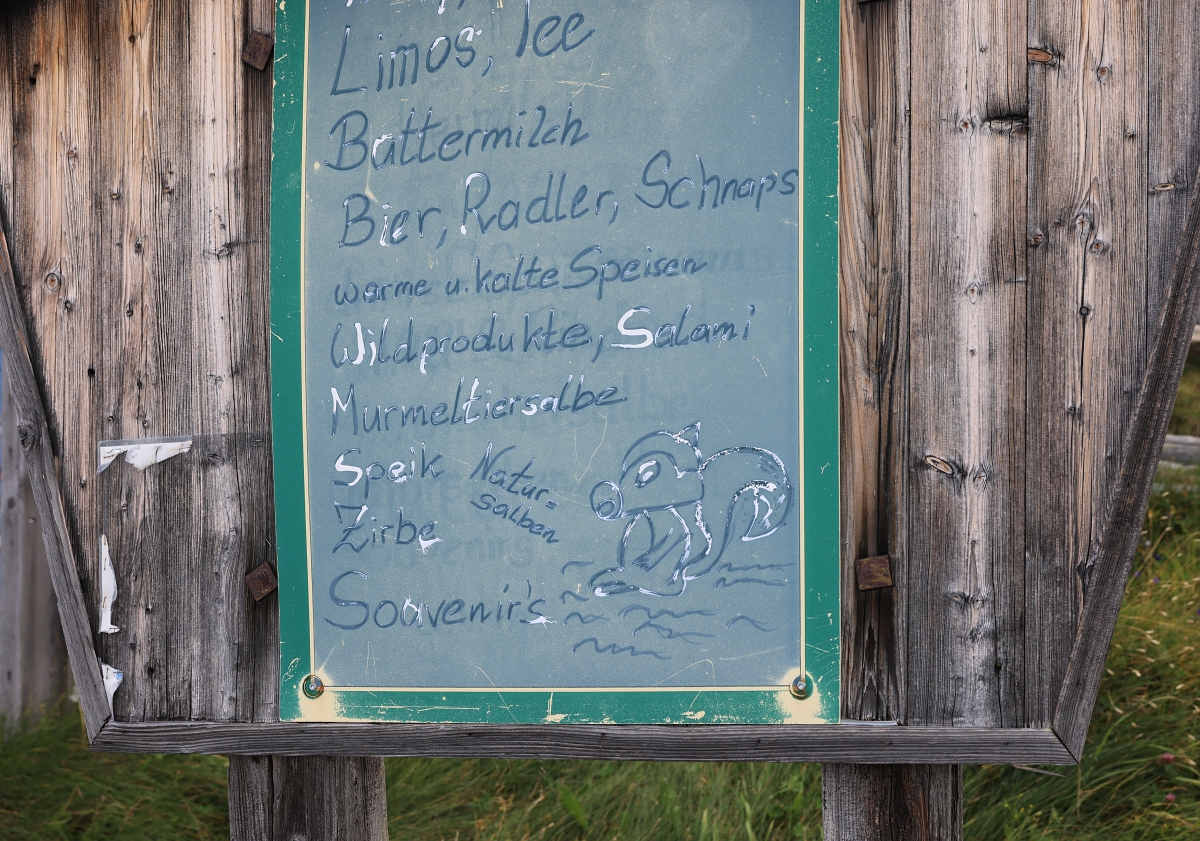 Limos, Tee
Buttermilch
Bier, Radler, Schnaps
warme u. kalte Speisen
Wildprodukte, Salami
Murmeltiersalbe
Speik Natur=
salben
Zirbe
Souvenir's